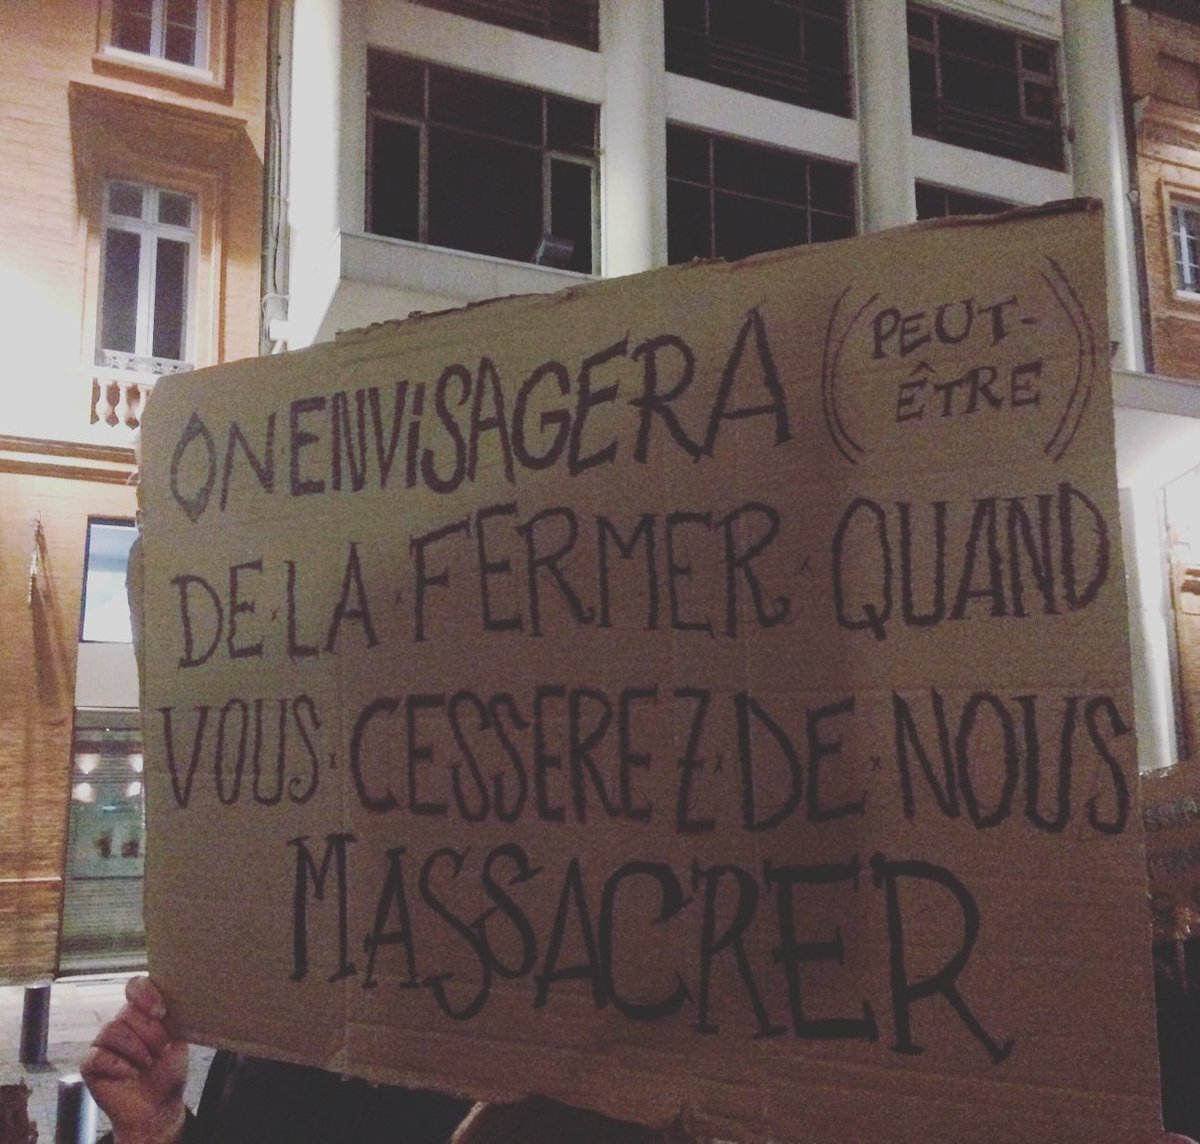 ON ENVISAGERA (PEUT-
ÊTRE)
DE LA FERMER QUAND
VOUS CESSEREZ DE NOUS
MASSACRER